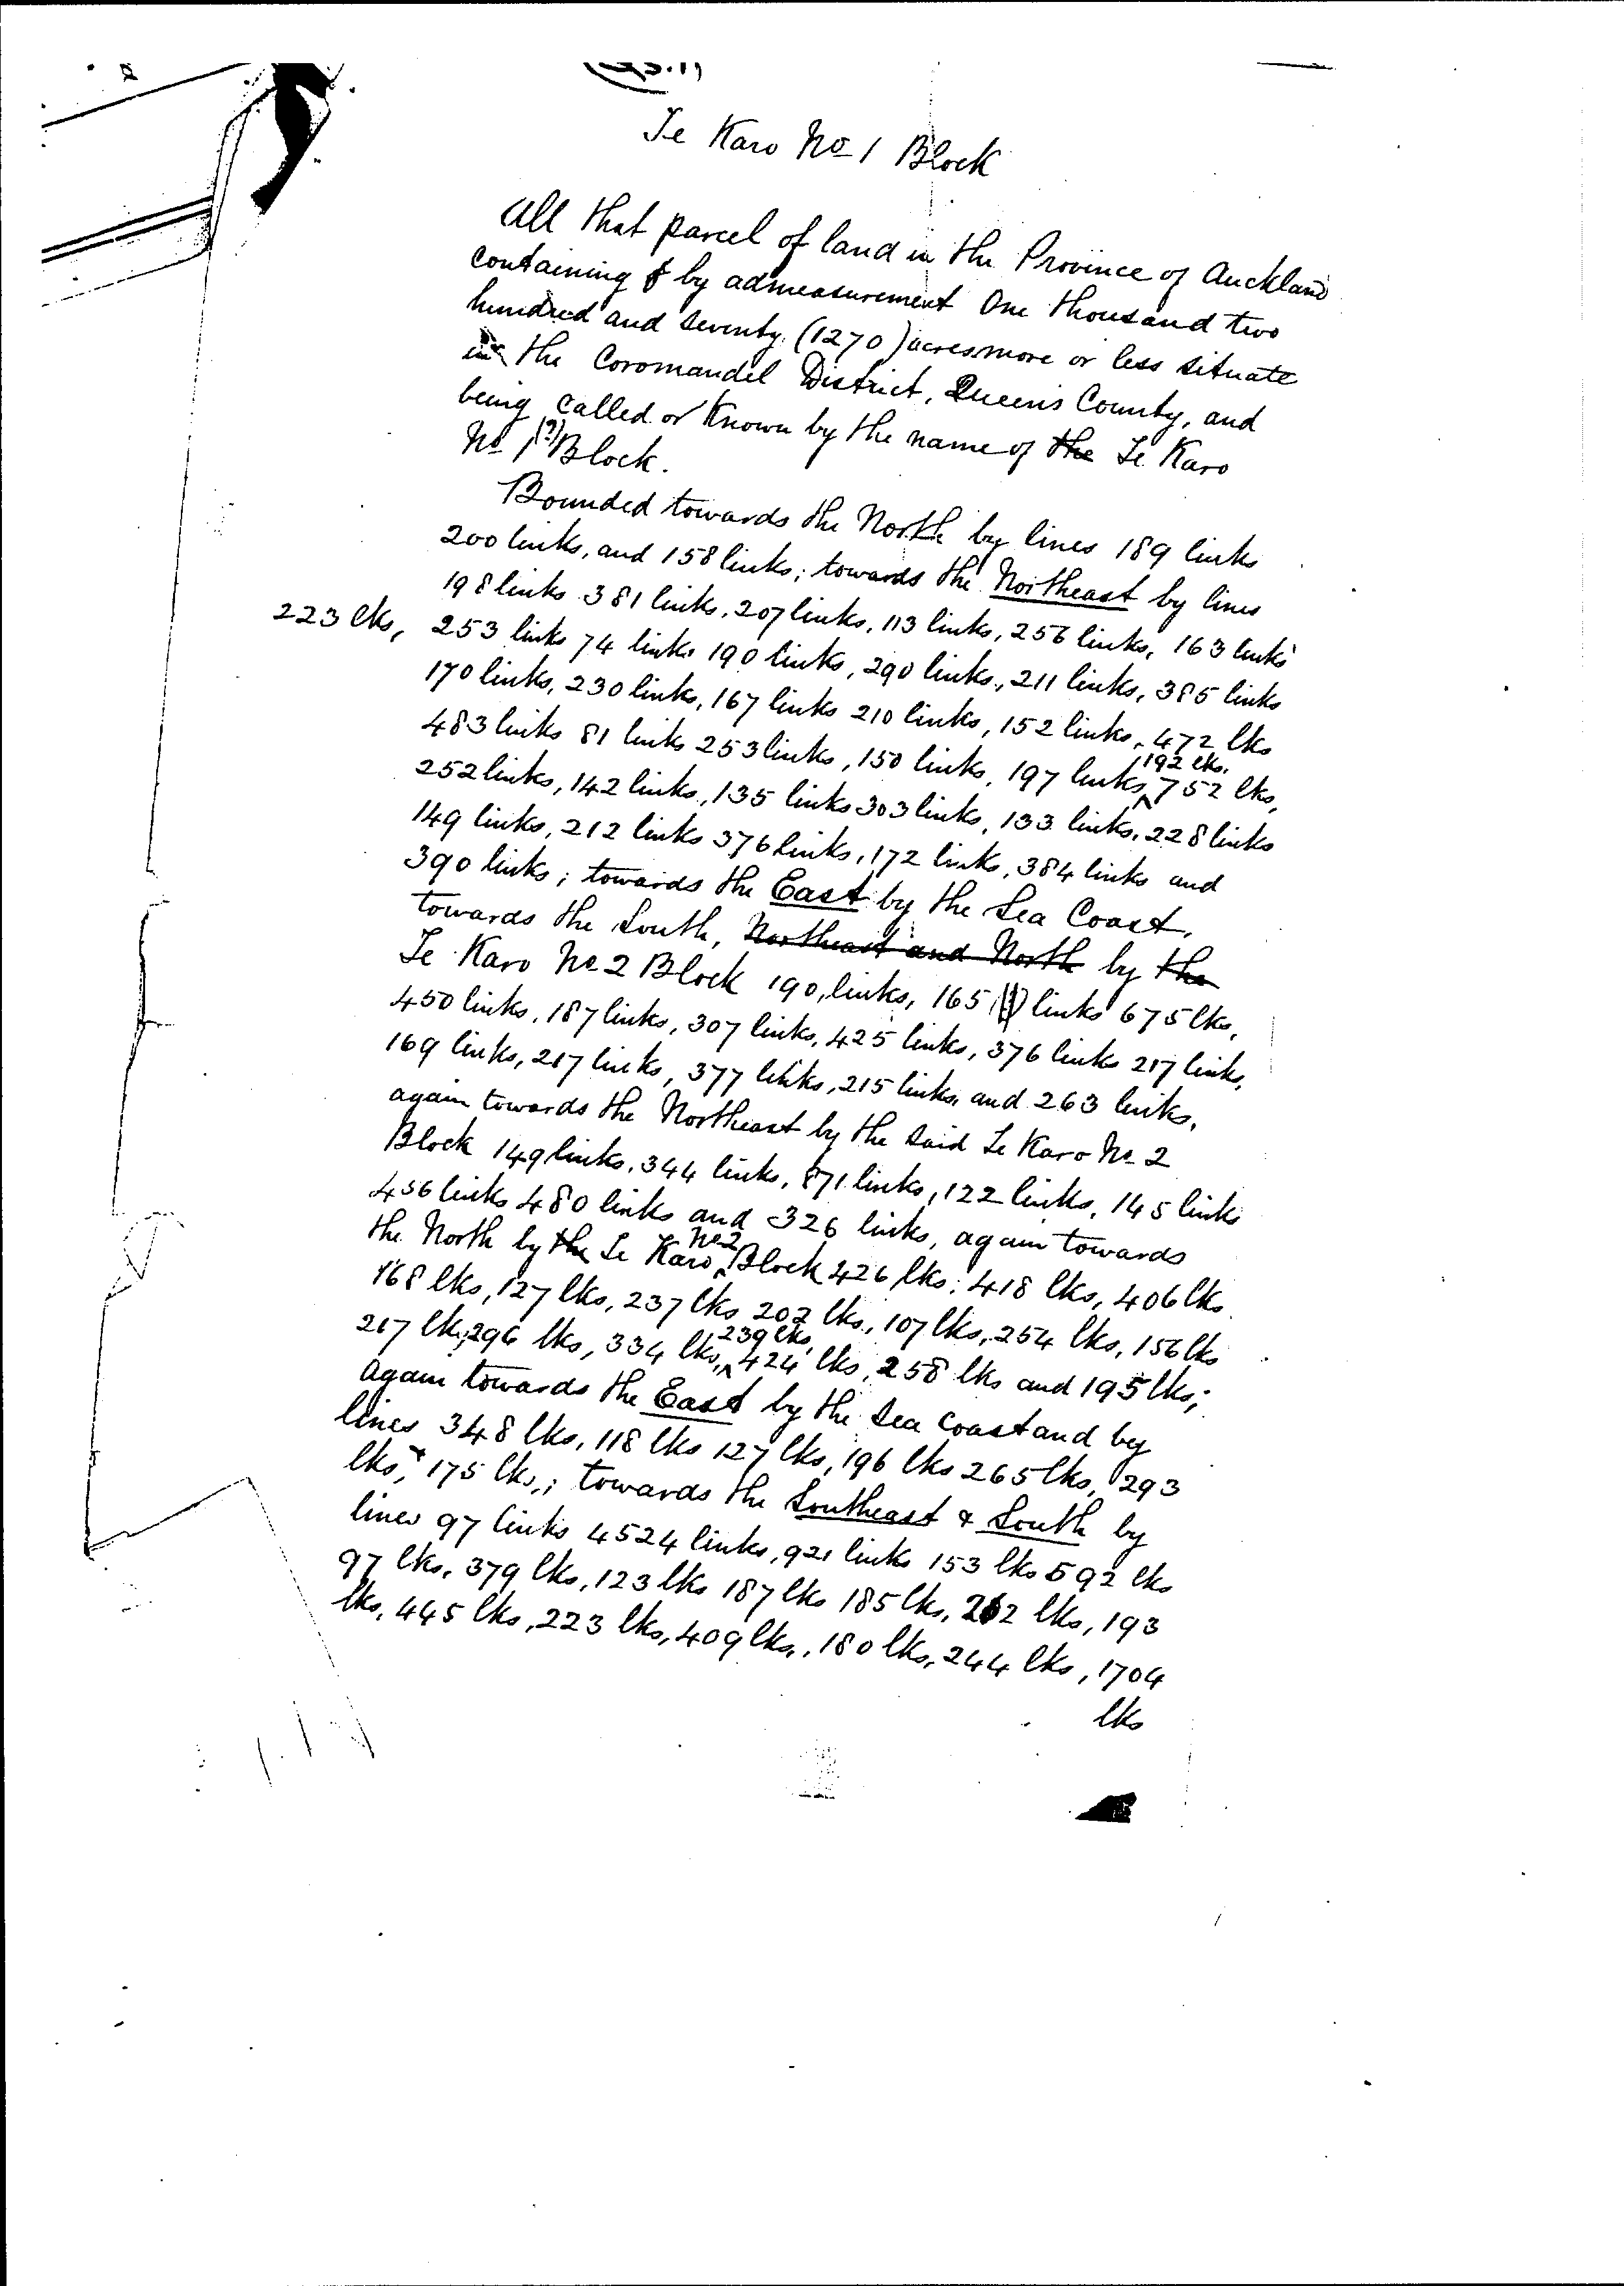 Te Karo No 1 Block
All that parcel of land in the Province of Auckland
containing by admeasurement One thousand two
hundred and seventy (1270) acres more or less situate
in the Coromandel District, Queen's County, and
being called or known by the name of the Te Karo
No 1 (?) Block.
Bounded towards the North by lines 189 links
200 links, and 158 links; towards the Northeast by lines
198 links 381 links, 207 links, 113 links, 256 links, 163 links
223 lks, 253 links 74 links 190 links, 290 links, 211 links, 385 links
170 links, 230 links, 167 links 210 links, 152 links, 472 lks
483 links 81 links 253 links, 150 links, 197 links, 192 lks. 752 lks,
252 links, 142 links, 135 links 303 links, 133 links, 228 links
149 links, 212 links 376 links, 172 links, 384 links and
390 links; towards the East by the Sea Coast,
towards the South, Northeast and North by the
Te Karo No 2 Block 190, links, 165 links 675 lks,
450 links, 187 links, 307 links, 425 links, 376 links 217 links,
169 links, 217 links, 377 links, 215 links and 263 links,
again towards the Northeast by the said Te Karo No 2
Block 149 links, 344 links, 871 links, 122 links, 145 links
456 links 480 links and 326 links, again towards
the North by the Te Karo No 2 Block 426 lks, 418 lks, 406 lks
168 lks, 127 lks, 237 lks 202 lks, 107 lks, 254 lks, 156 lks
217 lks, 296 lks, 334 lks, 239 lks, 424 lks, 258 lks and 195 lks;
again towards the East by the Sea coast and by
lines 348 lks, 118 lks 127 lks, 196 lks 265 lks, 293
lks, + 175 lks,; towards the Southeast & South by
lines 97 links 4524 links, 921 links 153 lks 592 lks
97 lks, 379 lks, 123 lks 187 lks 185 lks, 212 lks, 193
lks, 445 lks, 223 lks, 409 lks, 180 lks, 244 lks, 1704
lks